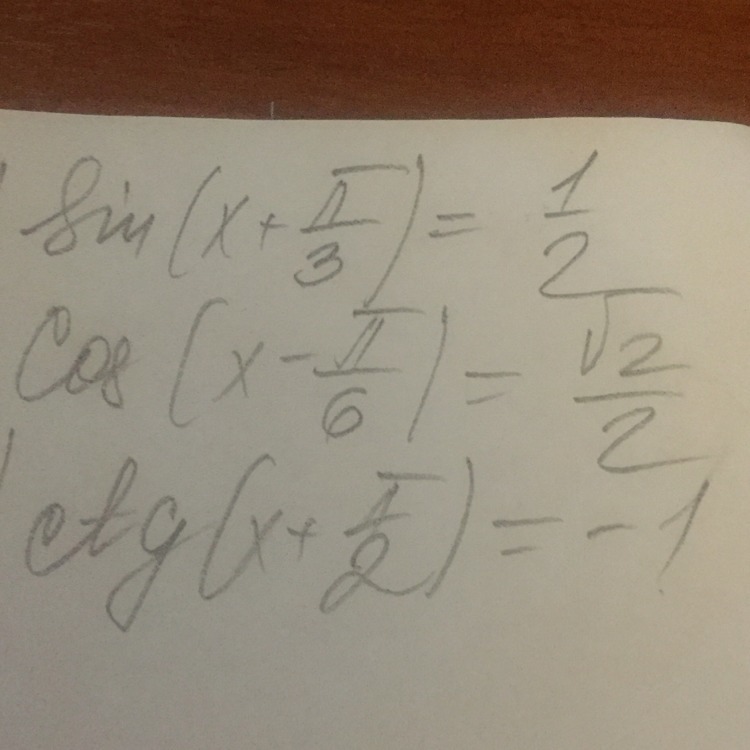 sin(x+π/3)=1/2
cos(x-π/6)=√2/2
ctg(x+π/2)=-1